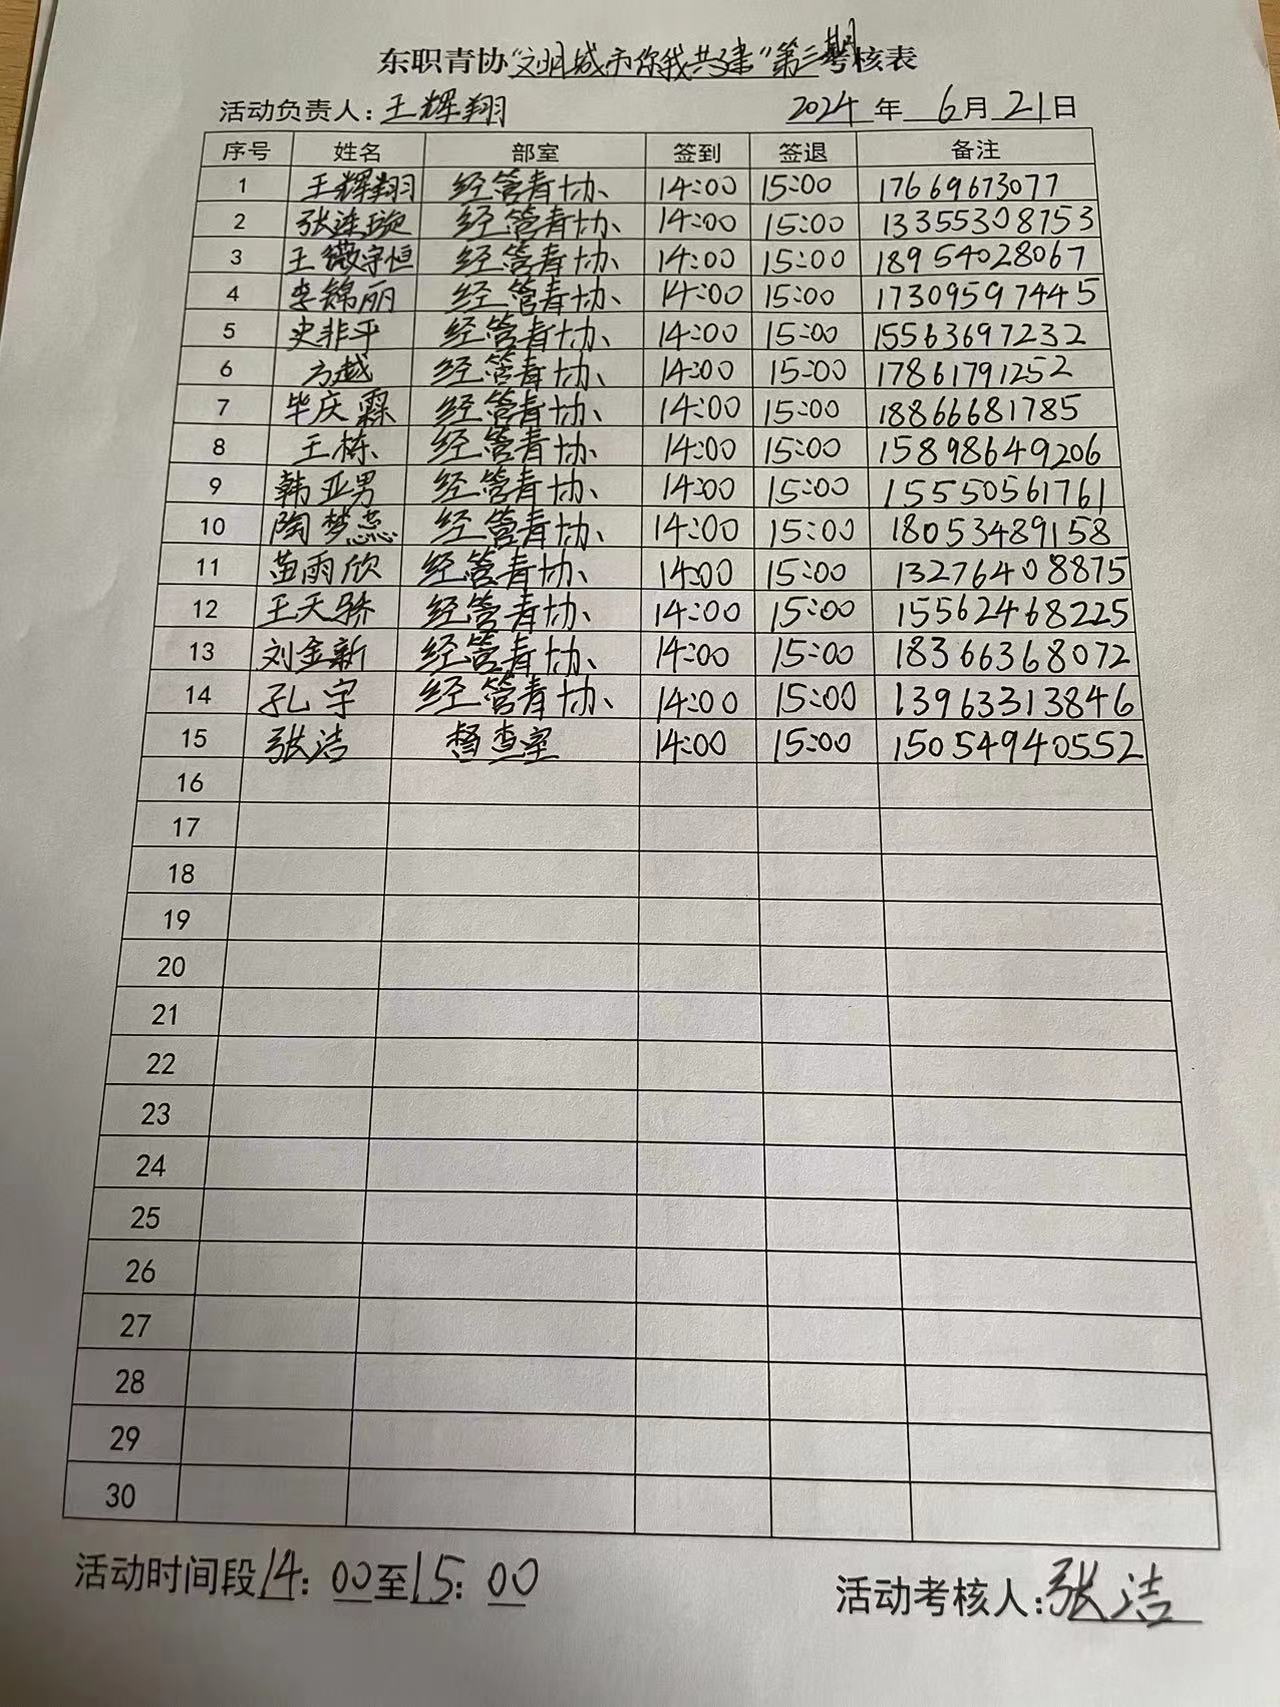 东职青协“文明城市你我共建”第三期考核表
活动负责人：王辉翔 2024 年 6月21日
序号 姓名 部室 签到 签退 备注
1 王辉翔 经管青协 14:00 15:00 17669673077
2 张连璇 经管青协 14:00 15:00 13355308753
3 王薇宇恒 经管青协 14:00 15:00 18954028067
4 李锦丽 经管青协 14:00 15:00 17309597445
5 史非平 经管青协 14:00 15:00 15563697232
6 方越 经管青协 14:00 15:00 17861791252
7 毕庆霖 经管青协 14:00 15:00 18866681785
8 王栋 经管青协 14:00 15:00 15898649206
9 韩亚男 经管青协 14:00 15:00 15550561761
10 陶梦蕊 经管青协 14:00 15:00 18053489158
11 苗雨欣 经管青协 14:00 15:00 13276408875
12 王天骄 经管青协 14:00 15:00 15562468225
13 刘金新 经管青协 14:00 15:00 18366368072
14 孔宇 经管青协 14:00 15:00 13963313846
15 张洁 督查室 14:00 15:00 15054940552
16
17
18
19
20
21
22
23
24
25
26
27
28
29
30
活动时间段14：00至15：00 活动考核人:张洁